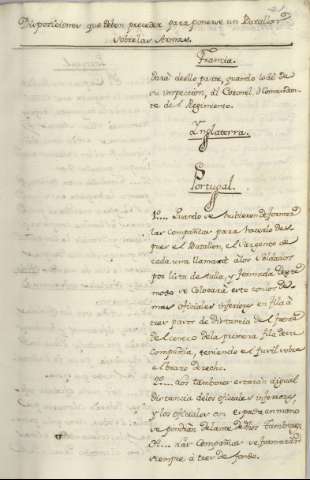 Disposiciones que deben preceder para ponerse un Batallon
sobre las Armas.
Francia.
Dará de ello parte, quando lo dé de
su inspeccion, al Coronel, ó Comandan-
te del Regimiento.
Ynglaterra.
Portugal.
1º... Quando se hubieren de formar
las compañias para hacerlo des-
pues el Batallon, el Sargento de
cada una llamará á los Soldados
por lista de Talla, y formada de este
modo se colocará este con los de-
mas oficiales inferiores en fila á
tres pasos de distancia del frente
del centro de la primera fila de su
Compañia, teniendo el fusil sobre
el brazo derecho.
2º... Los tambores estarán á igual
distancia de los oficiales inferiores,
y los oficiales con espada en mano
se pondrán delante de los tambores.
3º... Las Compañias se formarán
siempre á tres de fondo.